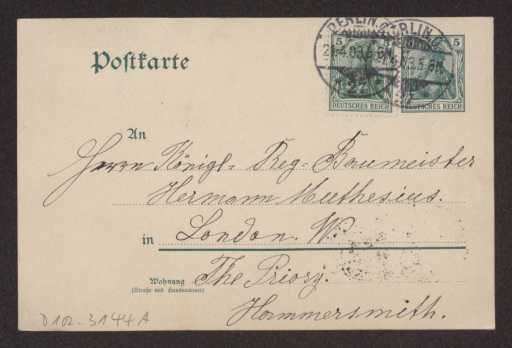 Postkarte
BERLIN BERLIN
5 5 5
DEUTSCHES REICH DEUTSCHES REICH
An
Herrn Königl. Reg. Baumeister
Hermann Muthesius.
in London. W.
Wohnung The Priory.
(Straße und Hausnummer)
Hammersmith.
D 102-3144 A